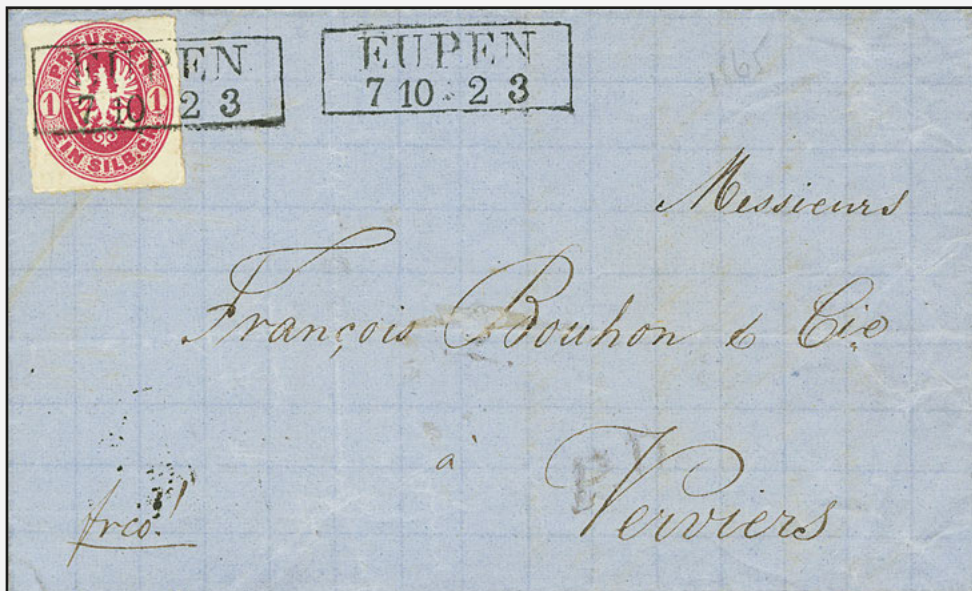 PREUSSEN
1 1
EIN SILB.GR.
EUPEN
7 10 2 3
EUPEN
7 10 2 3
1865
Messieurs
François Bouhon & Cie
à
Verviers
frco!